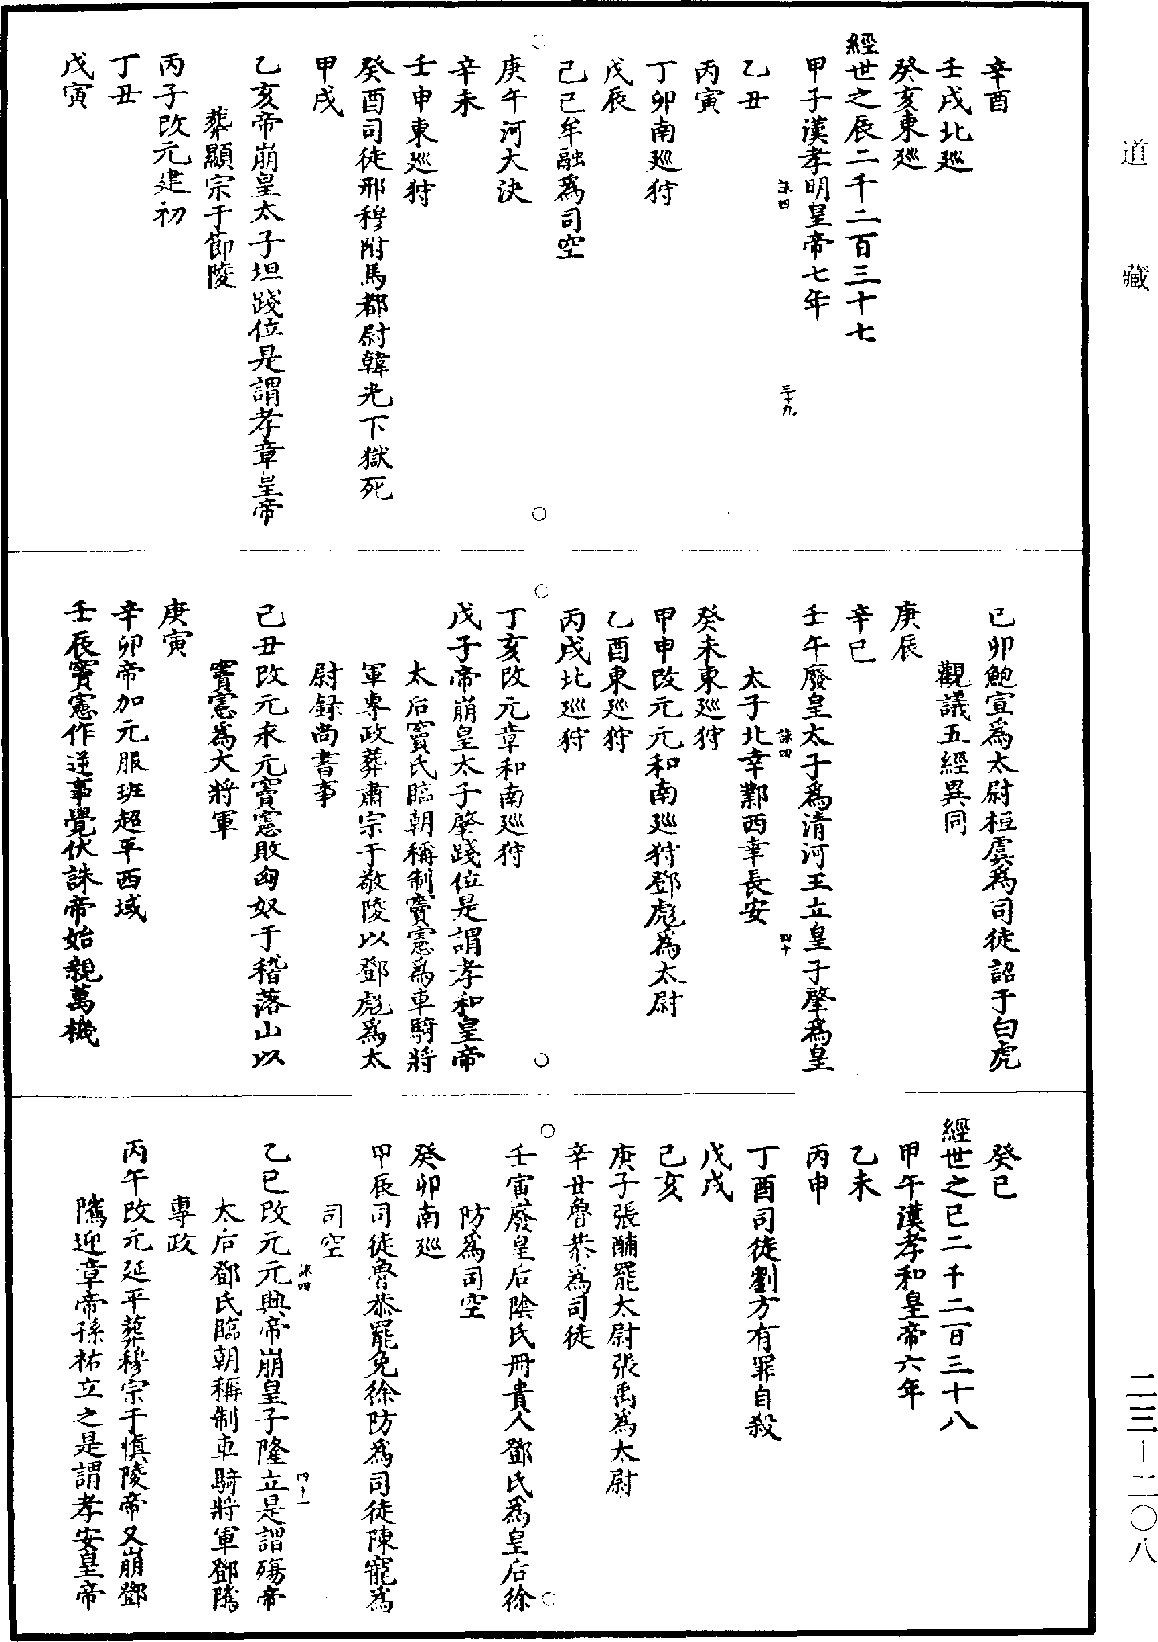 道藏
辛酉
壬戌北巡
癸亥東巡
經世之辰二千二百三十七
甲子漢孝明皇帝七年
洙四
三十九
乙丑
丙寅
丁卯南巡狩
戊辰
己巳牟融爲司空
庚午河大決
辛未
壬申東巡狩
癸酉司徒邢穆附馬都尉韓光下獄死
甲戌
乙亥帝崩皇太子坦踐位是謂孝章皇帝
葬顯宗于節陵
丙子改元建初
丁丑
戊寅
己卯鮑宣爲太尉桓虞爲司徒詔于白虎
觀議五經異同
庚辰
辛巳
壬午廢皇太子爲清河王立皇子肇爲皇
洙四
四十
太子北幸鄴西幸長安
癸未東巡狩
甲申改元元和南巡狩鄧彪爲太尉
乙酉東巡狩
丙戌北巡狩
丁亥改元章和南巡狩
戊子帝崩皇太子肇踐位是謂孝和皇帝
太后竇氏臨朝稱制竇憲爲車騎將
軍專政葬肅宗于敬陵以鄧彪爲太
尉録尚書事
己丑改元永元竇憲敗匈奴于稽落山以
竇憲爲大將軍
庚寅
辛卯帝加元服班超平西域
壬辰竇憲作逆事覺伏誅帝始親萬機
癸巳
經世之巳二千二百三十八
甲午漢孝和皇帝六年
乙未
丙申
丁酉司徒劉方有罪自殺
戊戌
己亥
庚子張酺罷太尉張禹爲太尉
辛丑魯恭爲司徒
壬寅廢皇后陰氏冊貴人鄧氏爲皇后徐
防爲司空
癸卯南巡
甲辰司徒魯恭罷免徐防爲司徒陳寵爲
司空
洙四
四十一
乙巳改元元興帝崩皇子隆立是謂殤帝
太后鄧氏臨朝稱制車騎將軍鄧騭
專政
丙午改元延平葬穆宗于慎陵帝又崩鄧
騭迎章帝孫祐立之是謂孝安皇帝
二三－二〇八